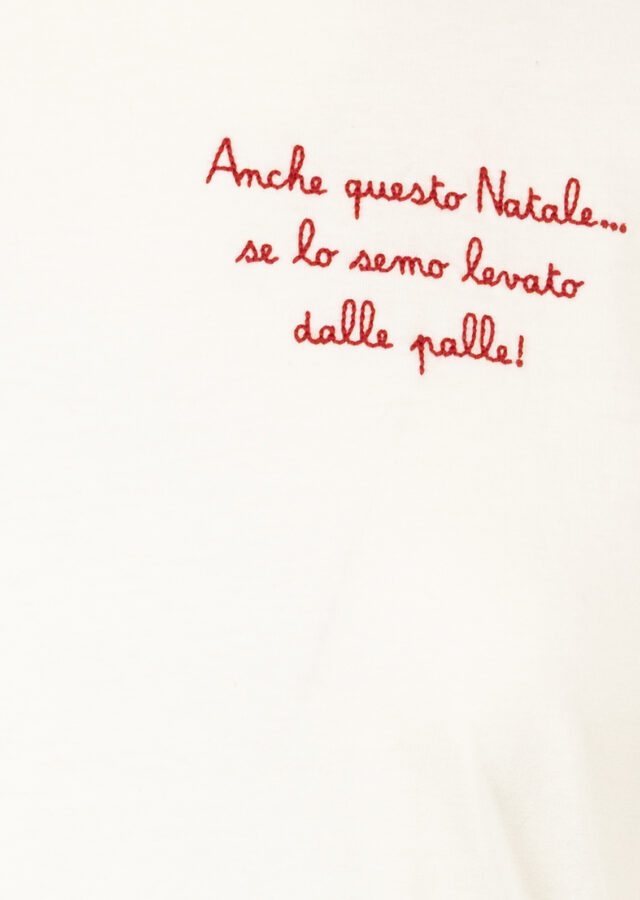 Anche questo Natale...
se lo semo levato
dalle palle!